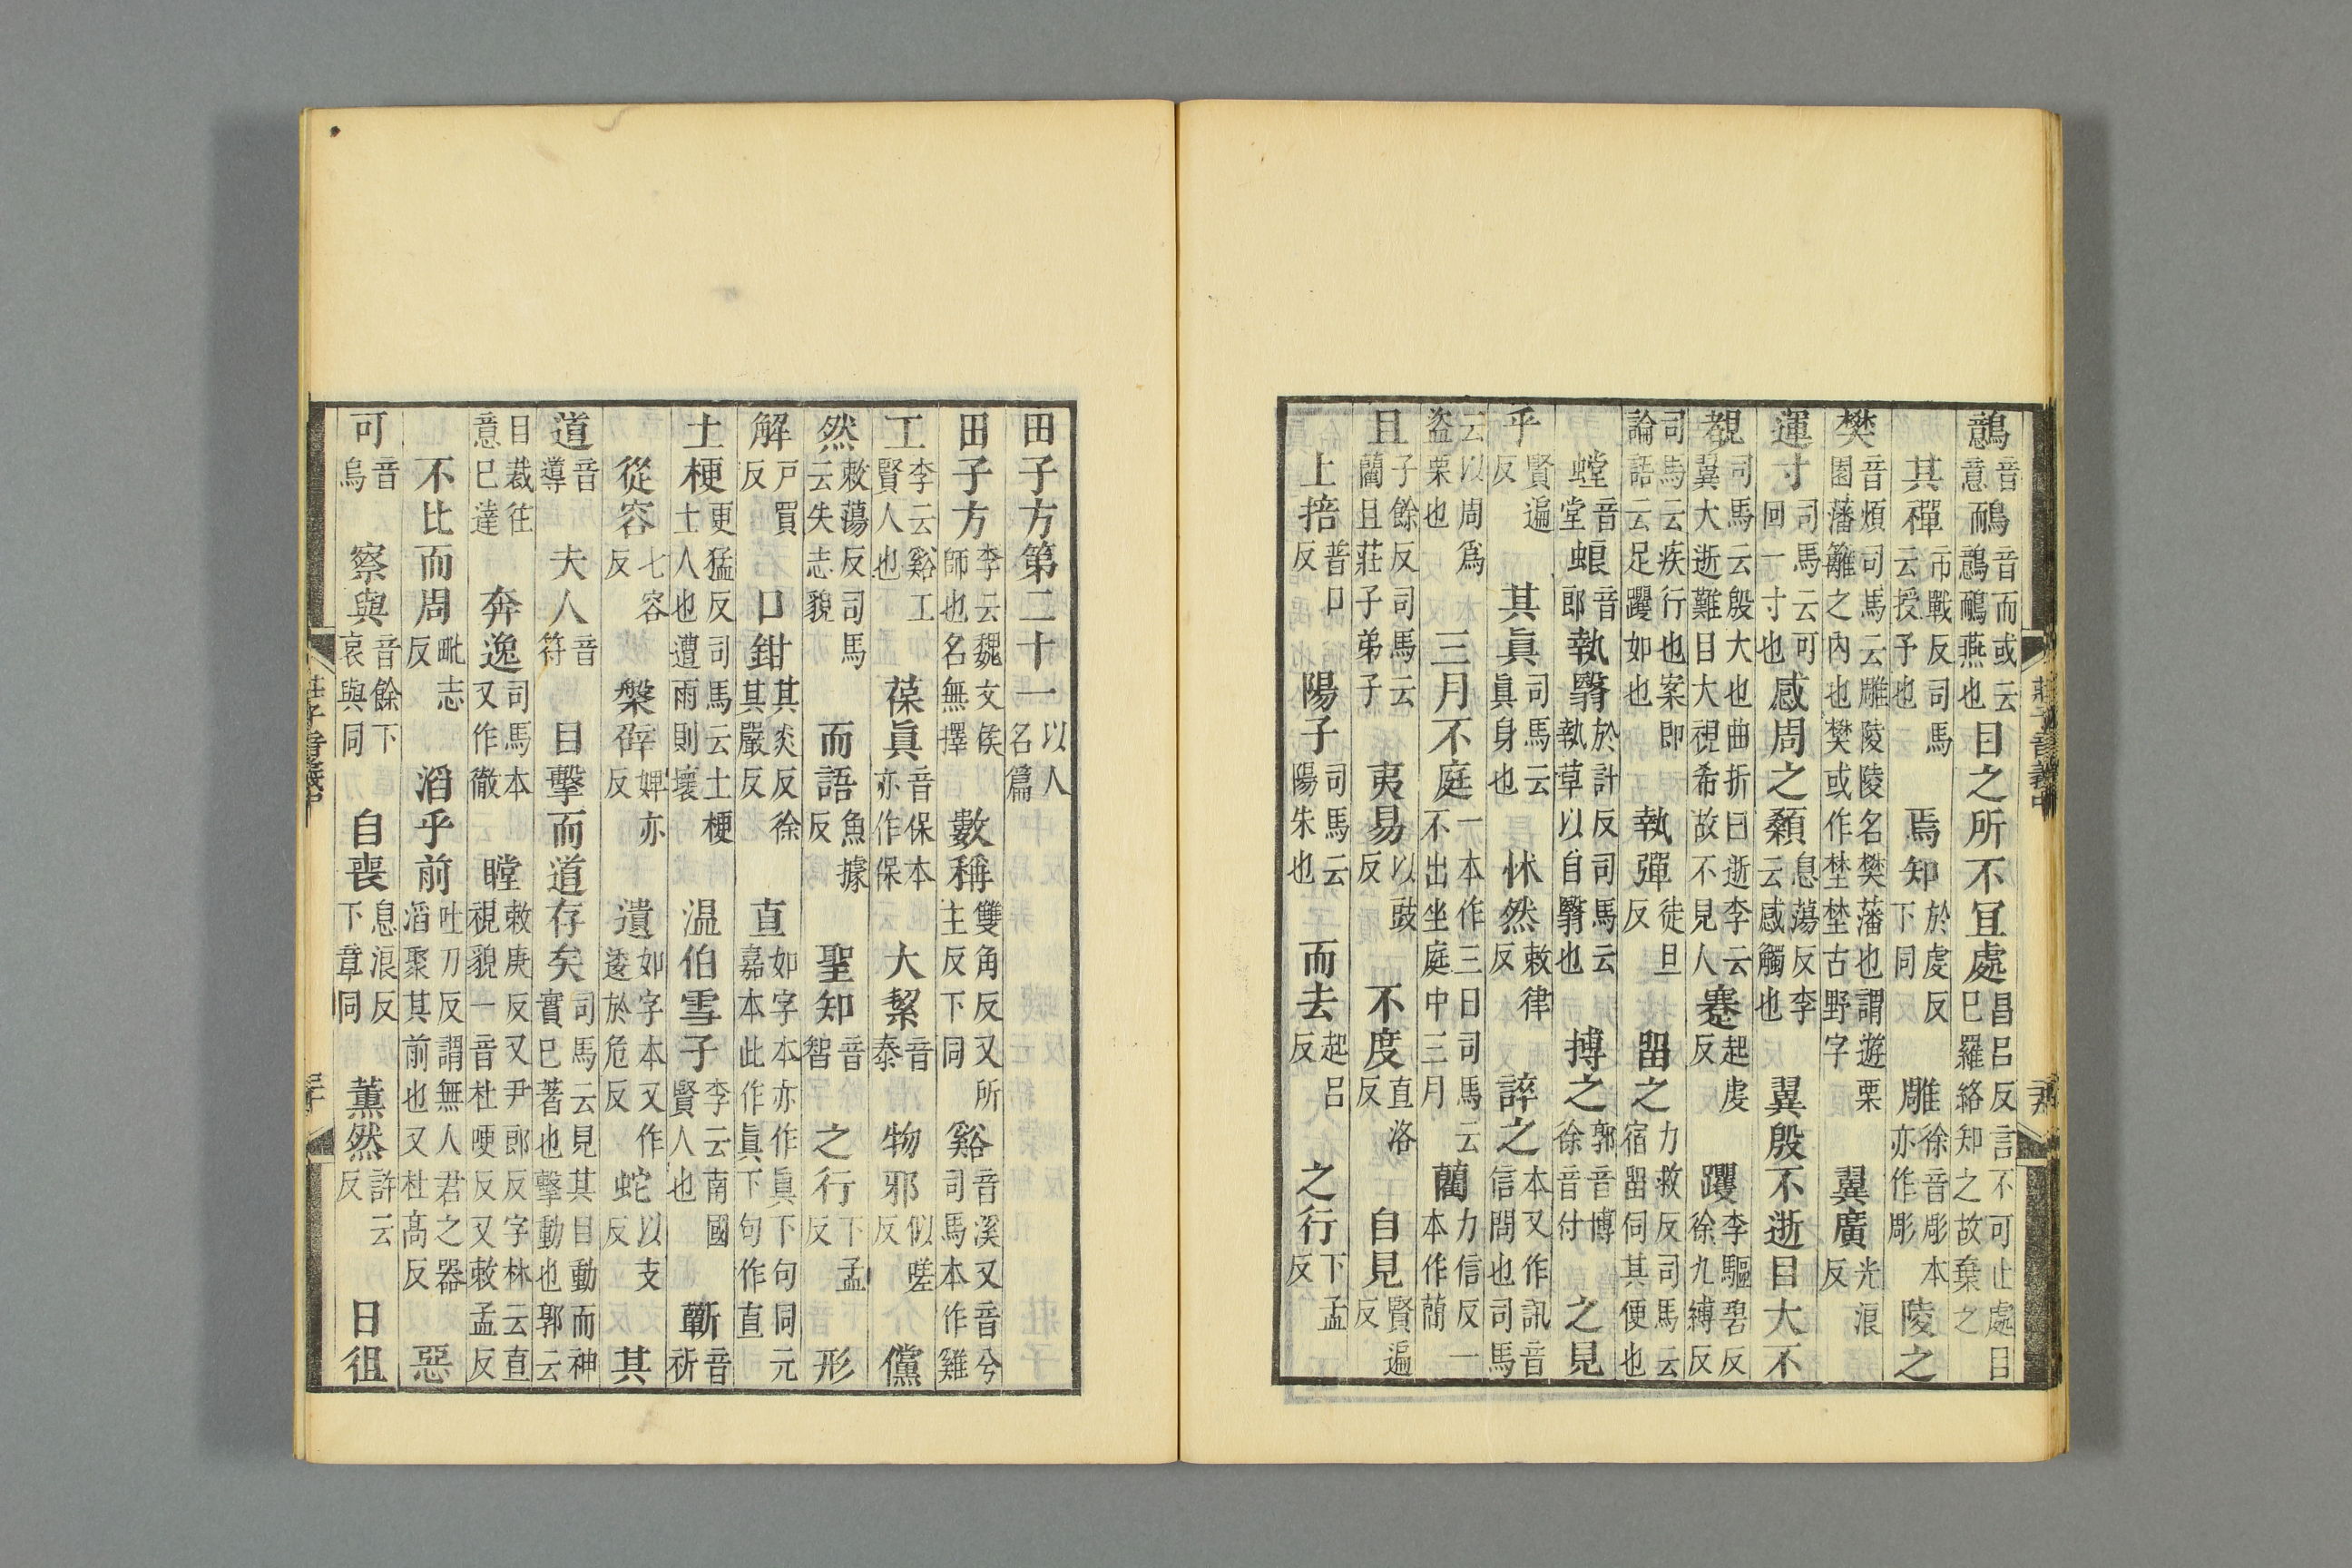 鷾音意鴯音而或云鷾鴯燕也目之所不宜處昌呂反言不可止處目已羅絡知之故棄之
其禪市戰反司馬云授予也 焉知於虔反下同 雕徐音彫本亦作彫 陵之
樊音煩司馬云雕陵陵名樊藩也謂遊栗園藩籬之內也樊或作埜埜古野字 翼廣光浪反
運寸司馬云可回一寸也 感周之顙息蕩反李云感觸也 翼殷不逝目大不
覩司馬云殷大也曲折曰逝李云翼大逝難目大視希故不見人 蹇起虔反 躩李驅碧反徐九縛反
司馬云疾行也案即論語云足躩如也 執彈徒旦反 留之力救反司馬云宿留伺其便也
螳音堂蜋音郎執翳於計反司馬云執草以自翳也 搏之郭音博徐音付 之見
乎賢遍反 其眞司馬云眞身也 怵然敕律反 誶之本又作訊音信問也司馬
云以周爲盜栗也 三月不庭一本作三日司馬云不出坐庭中三月 藺力信反一本作
且子餘反司馬云藺且莊子弟子 夷易以豉反 不度直洛反 自見賢遍反
上掊普口反 陽子司馬云陽朱也 而去起呂反 之行下孟反
莊子音義中
田子方第二十一以人名篇
田子方李云魏文侯師也名無擇 數稱雙角反又所主反下同 谿音溪又音兮司馬本作雞
工李云谿工賢人也 葆眞音保本亦作保 大絜音泰 物邪似嗟反 儻
然敕蕩反司馬云失志貌 而語魚據反 聖知音智 之行下孟反 形
解戶買反 口鉗其炎反徐其嚴反 直如字本亦作眞下句同元嘉本此作眞下句作直
土梗更猛反司馬云土梗土人也遭雨則壞 溫伯雪子李云南國賢人也 蘄音祈
從容七容反 槃辟婢亦反 遺如字本又作逶於危反 蛇以支反 其
道音導 夫人音符 目擊而道存矣司馬云見其目動而神實已著也擊動也郭云
目裁往意已達 奔逸司馬本又作徹 瞠敕庚反又尹郎反字林云直視貌一音杜哽反又敕孟反
不比而周毗志反 滔乎前吐刀反謂無人君之器滔聚其前也又杜高反 惡
可音烏 察與音餘下哀與同 自喪息浪反下章同 薰然許云反 日徂
莊子音義中